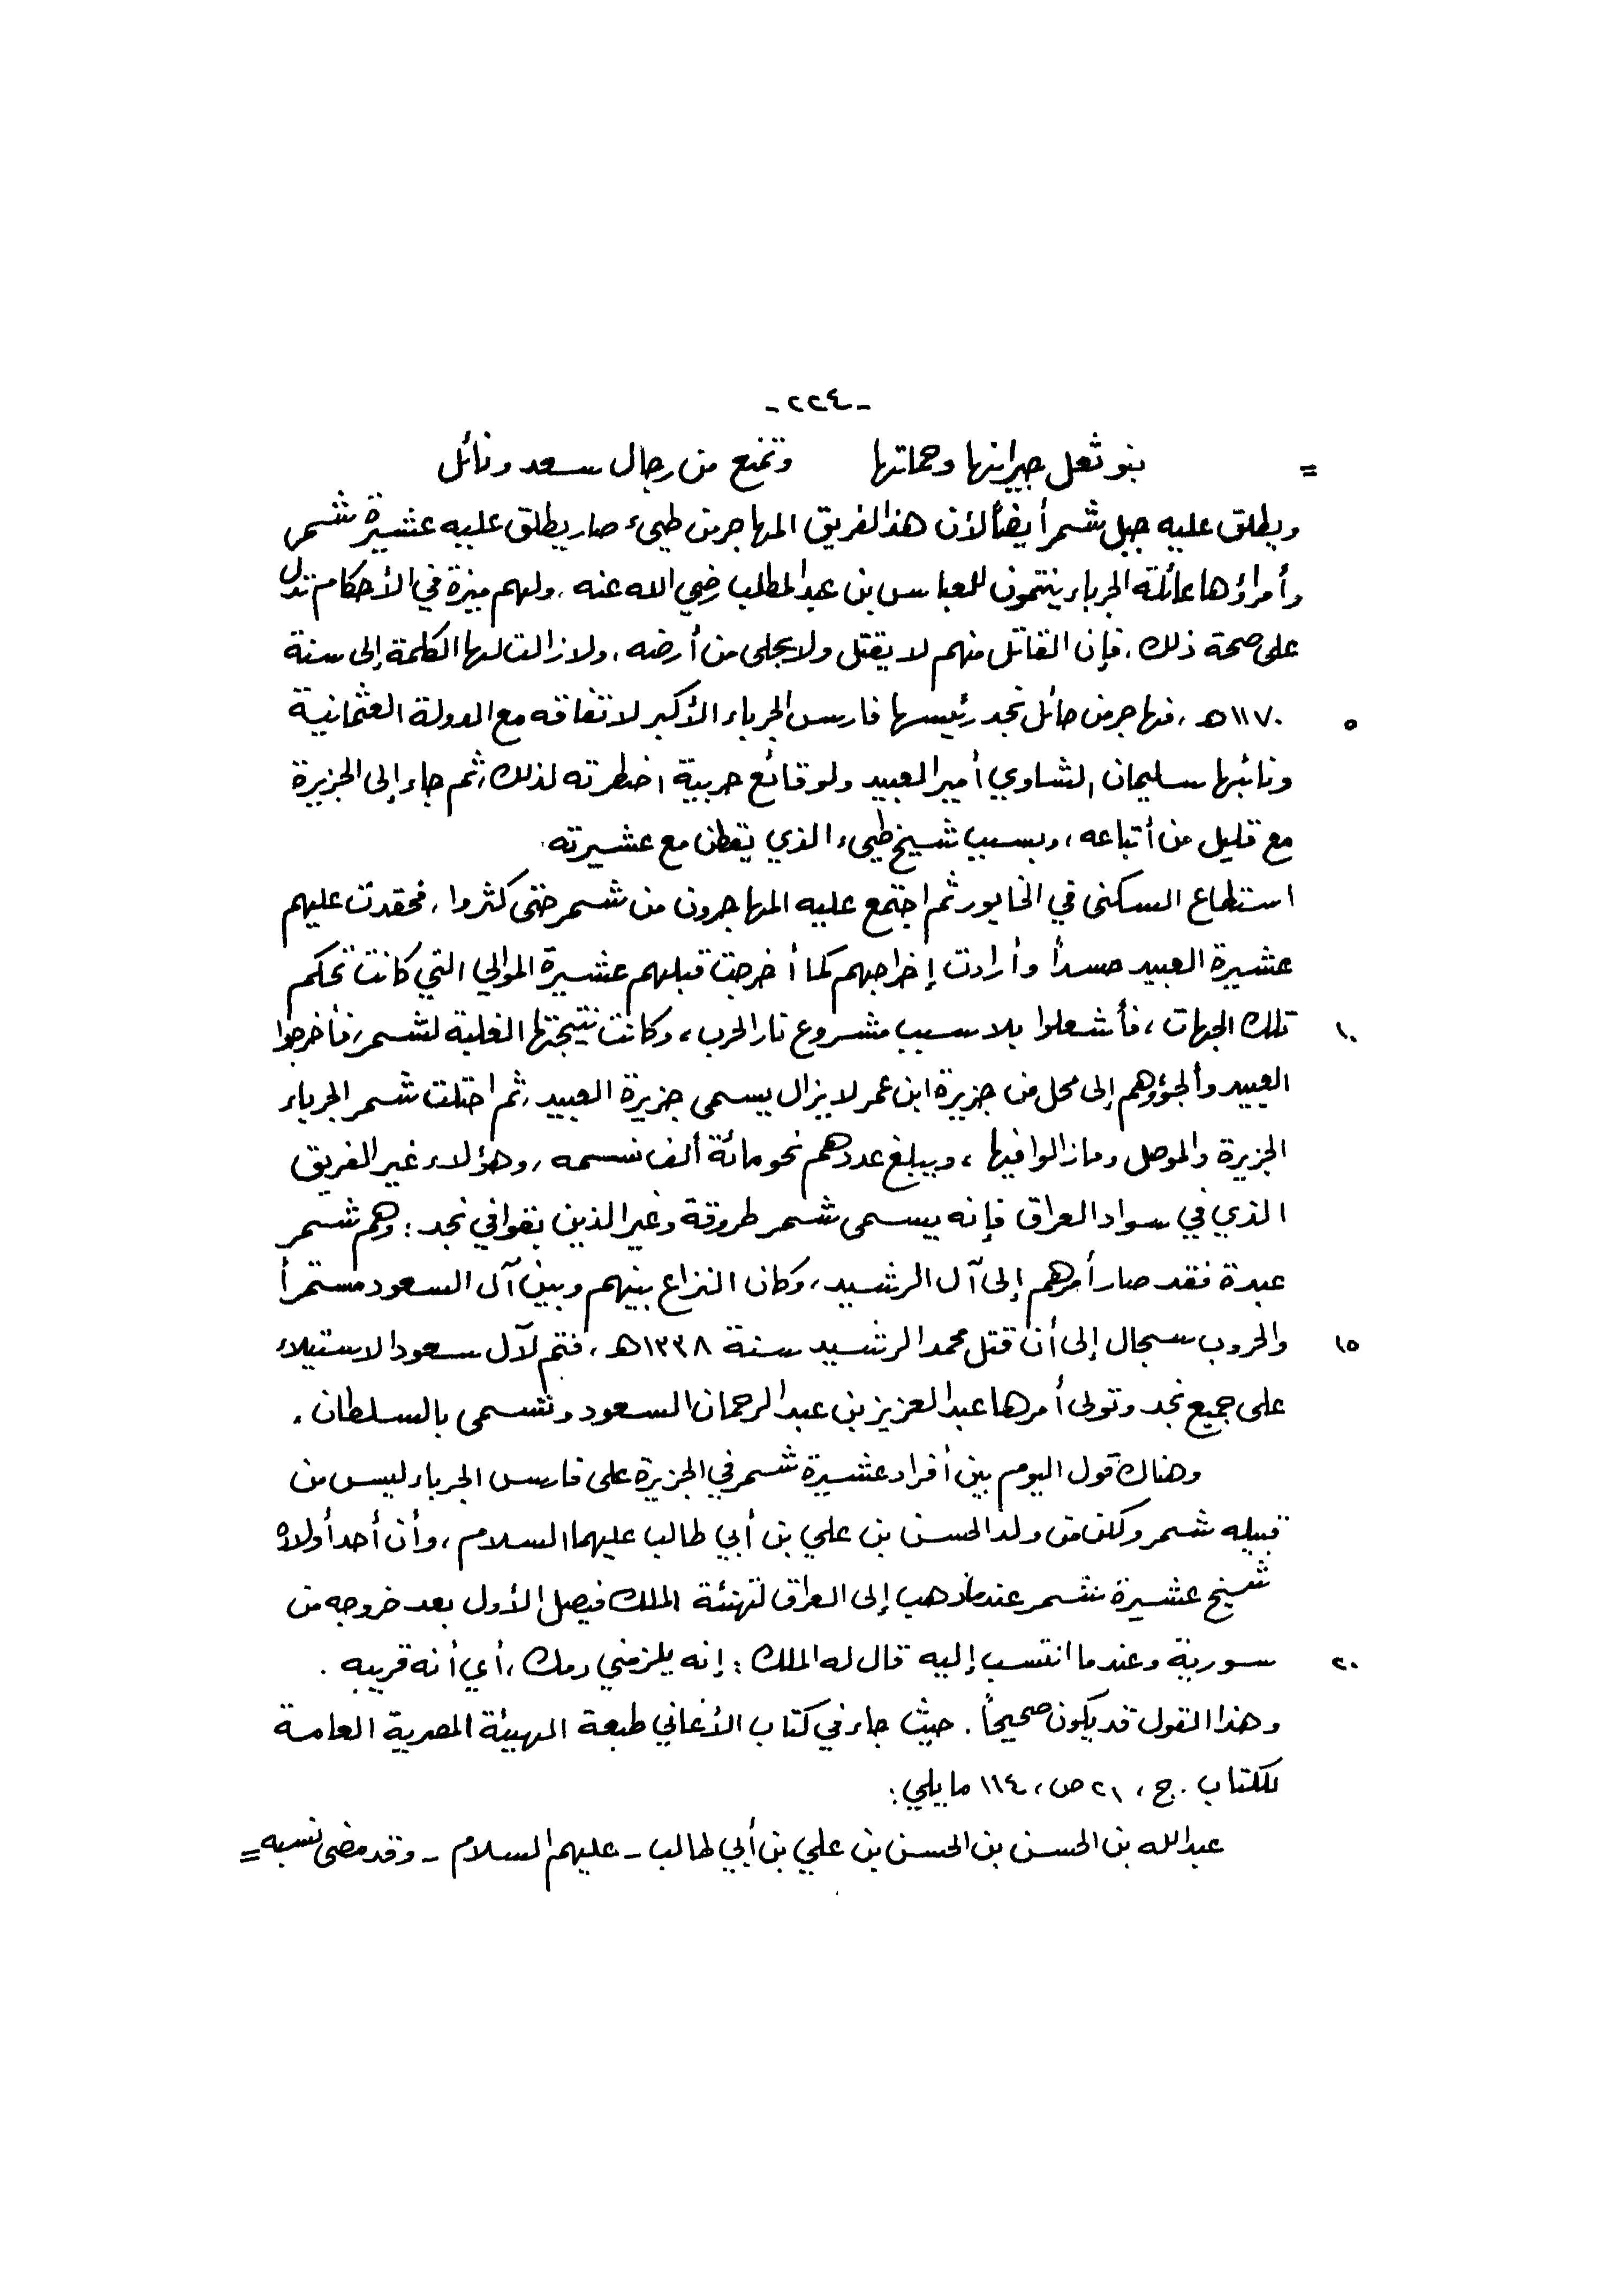 -٢٢٤-
= بنو ثعل جيرانها وحماتها وتمنع من رجال سعد ونائل
ويطلق عليه جبل شمر أيضاً لأن هذا الفريق المهاجر من طيىء صار يطلق عليه عشيرة شمر
وأمراؤها عائلة الجرباء ينتمون للعباس بن عبد المطلب رضي الله عنه، ولهم ميزة في الأحكام تدل
على صحة ذلك، فإن القاتل منهم لا يقتل ولا يجلى من أرضه، ولا زالت لها الكلمة إلى سنة
٥ ١١٧٠هـ، فهاجر من حائل نجد رئيسها فارس الجرباء الأكبر لاتفاقه مع الدولة العثمانية
ونائبها سليمان الشاوي أمير العبيد ولوقائع حربية اضطرته لذلك، ثم جاء إلى الجزيرة
مع قليل من أتباعه، وبسبب شيخ طيىء الذي يقطن مع عشيرته.
استطاع السكنى في الخابور ثم اجتمع عليه المهاجرون من شمر حتى كثروا، فحقدت عليهم
عشيرة العبيد حسداً وأرادت إخراجهم كما أخرجت قبلهم عشيرة الموالي التي كانت تحكم
١٠ تلك الجهات، فأشعلوا بلا سبب مشروع نار الحرب، وكانت نتيجتها الغلبة لشمر، فأخرجوا
العبيد وألجؤوهم إلى محل من جزيرة ابن عمر لا يزال يسمى جزيرة العبيد، ثم احتلت شمر الجرباء
الجزيرة والموصل وما زالوا فيها، ويبلغ عددهم نحو مائة ألف نسمه، وهؤلاء غير الفريق
الذي في سواد العراق فإنه يسمى شمر طروقة وغير الذين بقوا في نجد: وهم شمر
عبدة فقد صار أمرهم إلى آل الرشيد، وكان النزاع بينهم وبين آل السعود مستمراً
١٥ والحروب سجال إلى أن قتل محمد الرشيد سنة ١٣٣٨هـ، فتم لآل سعود الاستيلاء
على جميع نجد وتولى أمرها عبد العزيز بن عبد الرحمان السعود وتسمى بالسلطان.
وهناك قول اليوم بين أفراد عشيرة شمر في الجزيرة على فارس الجرباء ليس من
قبيله شمر ولكن من ولد الحسن بن علي بن أبي طالب عليهما السلام، وأن أحد أولاد
شيخ عشيرة شمر عندما ذهب إلى العراق لتهنئة الملك فيصل الأول بعد خروجه من
٢٠ سورية وعندما انتسب إليه قال له الملك: إنه يلزمني دمك، أي أنه قريبه.
وهذا القول قد يكون صحيحاً. حيث جاء في كتاب الأغاني طبعة الهيئة المصرية العامة
للكتاب. ج، ٢١ ص، ١١٤ ما يلي:
عبد الله بن الحسن بن الحسن بن علي بن أبي طالب - عليهم السلام - وقد مضى نسبه =